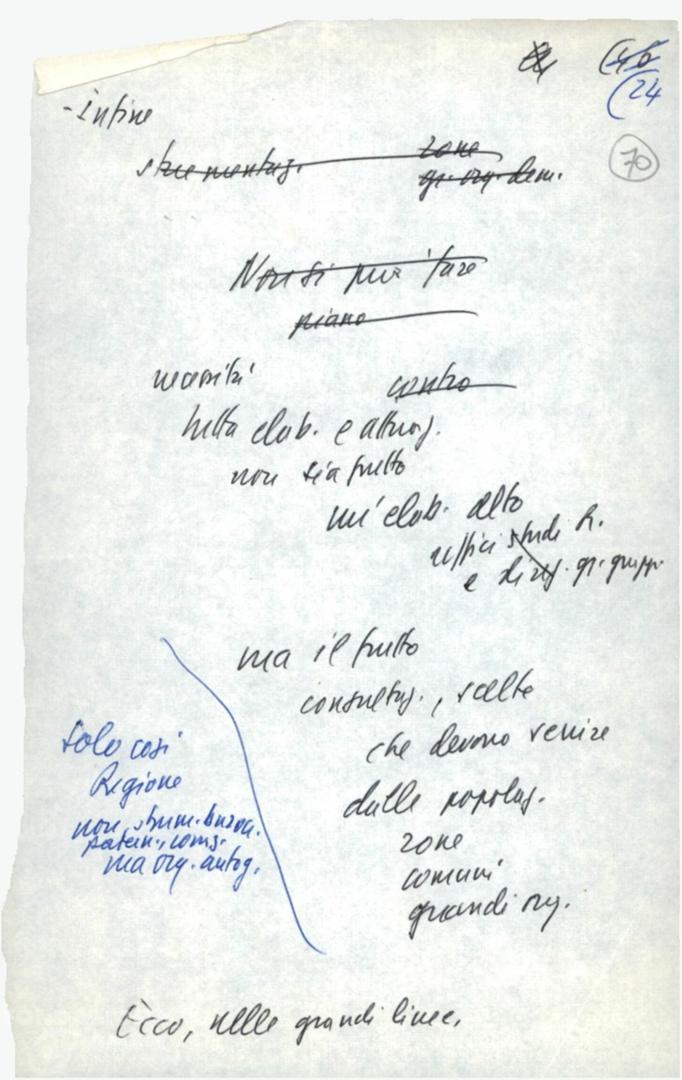 (46
(24
70
- infine
strumentaz. zone
gr. org. dem.
Non si può fare
piano
necessità contro
tutta elab. e attuaz.
non sia frutto
un'elab. alto
uffici studi R.
e di gr. gruppi
ma il frutto
consultaz., scelte
che devono venire
dalle popolaz.
zone
comuni
grandi org.
solo così
Regione
non strum. buroc.
patern.,
ma org. autog.
Ecco, nelle grandi linee,